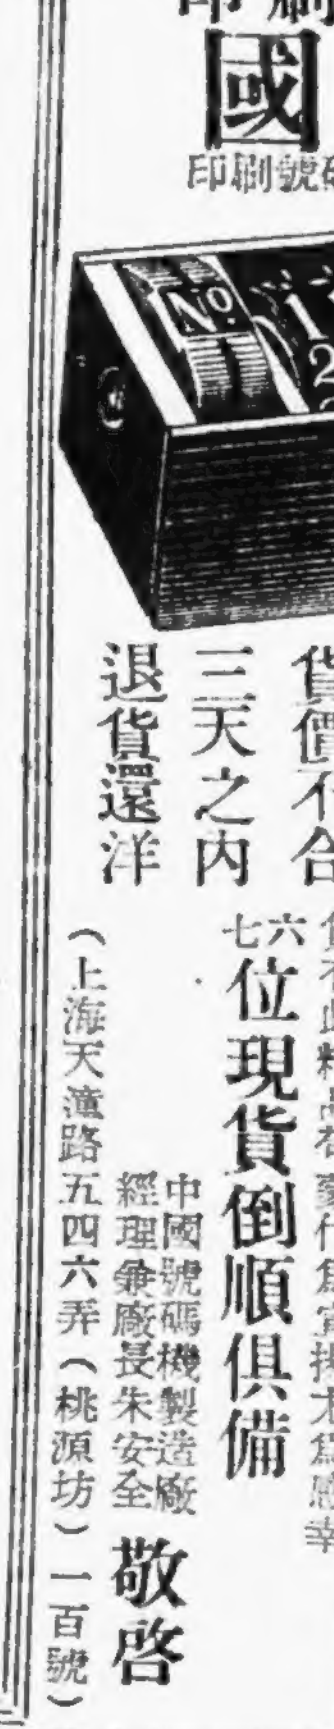 印刷
國
印刷號碼
No. 1
2
貨價不合
三天之內
退貨還洋
六七位現貨倒順俱備
中國號碼機製造廠
經理兼廠長朱安全
敬啓
（上海天潼路五四六弄（桃源坊）一百號）